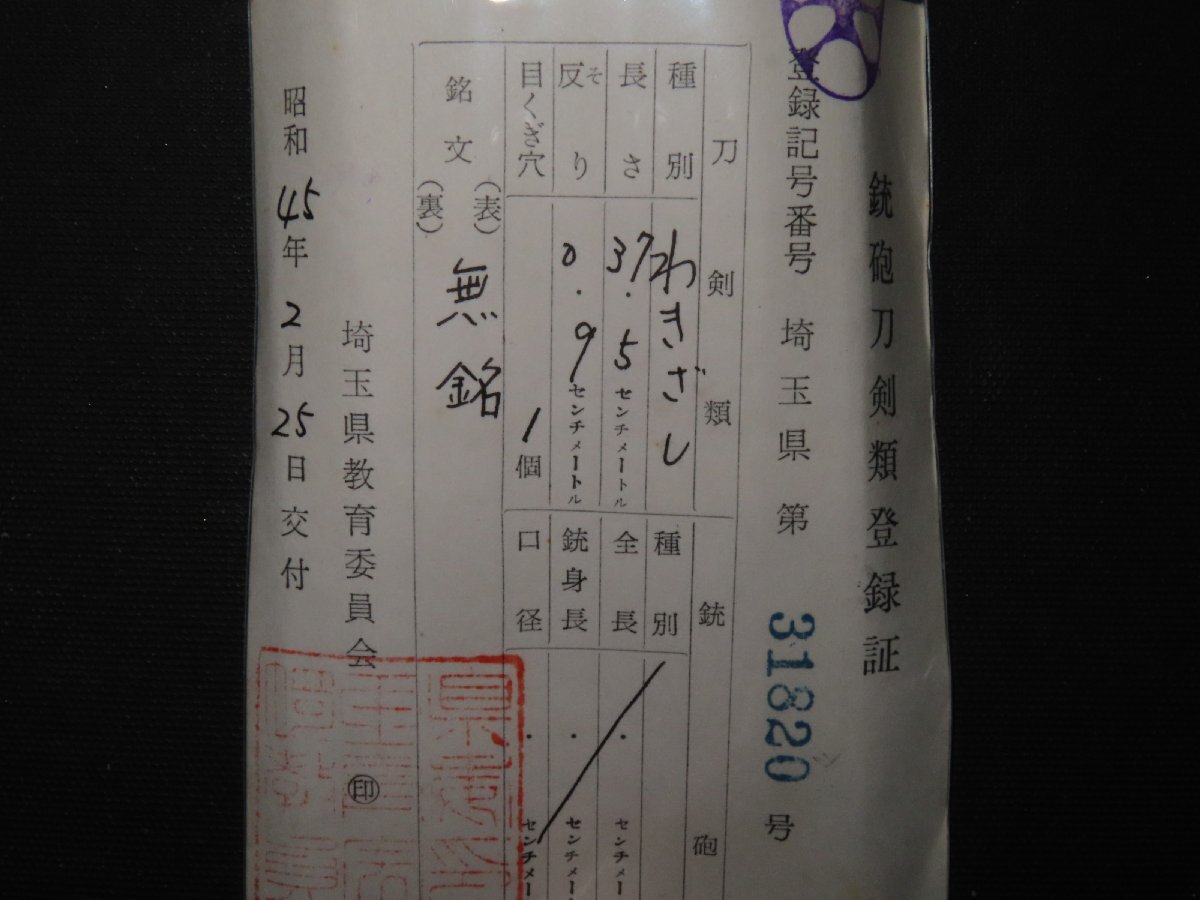 銃砲刀剣類登録証
登録記号番号 埼玉県 第 31820 号
刀剣類
種別 わきざし
長さ 37.5 センチメートル
反り そ 0.9 センチメートル
目くぎ穴 1 個
銘文 (表) 無銘
(裏)
銃砲
種別
全長 . センチメー
銃身長 . センチメート
口径 . センチメー
埼玉県教育委員会 ㊞
昭和 45 年 2 月 25 日交付